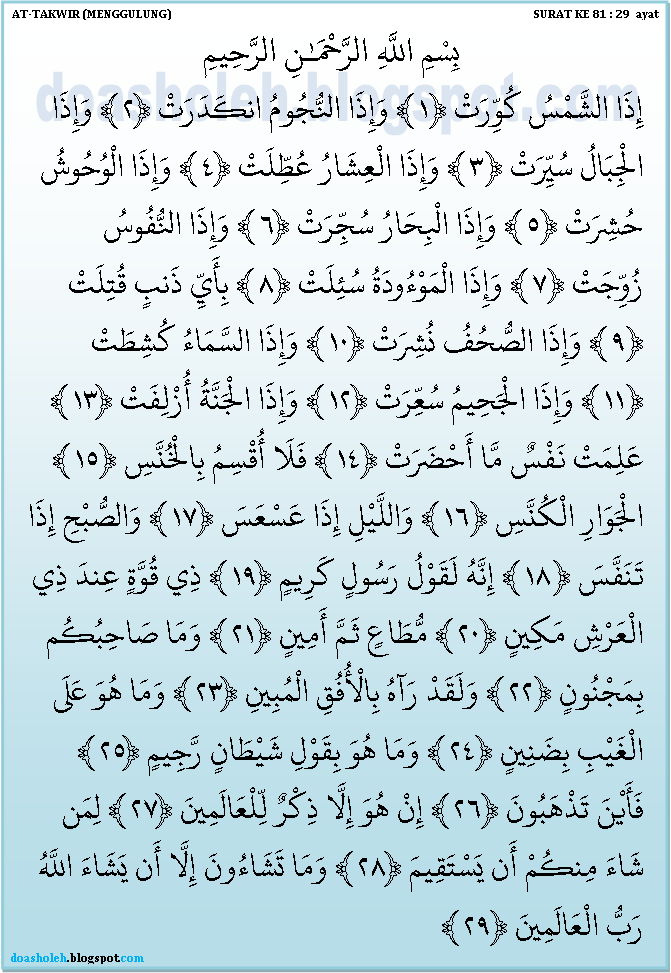 AT-TAKWIR (MENGGULUNG) SURAT KE 81 : 29 ayat
بِسْمِ اللَّهِ الرَّحْمَـٰنِ الرَّحِيمِ
doasholeh.blogspot.com
إِذَا الشَّمْسُ كُوِّرَتْ ﴿١﴾ وَإِذَا النُّجُومُ انكَدَرَتْ ﴿٢﴾ وَإِذَا
الْجِبَالُ سُيِّرَتْ ﴿٣﴾ وَإِذَا الْعِشَارُ عُطِّلَتْ ﴿٤﴾ وَإِذَا الْوُحُوشُ
حُشِرَتْ ﴿٥﴾ وَإِذَا الْبِحَارُ سُجِّرَتْ ﴿٦﴾ وَإِذَا النُّفُوسُ
زُوِّجَتْ ﴿٧﴾ وَإِذَا الْمَوْءُودَةُ سُئِلَتْ ﴿٨﴾ بِأَيِّ ذَنبٍ قُتِلَتْ
﴿٩﴾ وَإِذَا الصُّحُفُ نُشِرَتْ ﴿١٠﴾ وَإِذَا السَّمَاءُ كُشِطَتْ
﴿١١﴾ وَإِذَا الْجَحِيمُ سُعِّرَتْ ﴿١٢﴾ وَإِذَا الْجَنَّةُ أُزْلِفَتْ ﴿١٣﴾
عَلِمَتْ نَفْسٌ مَّا أَحْضَرَتْ ﴿١٤﴾ فَلَا أُقْسِمُ بِالْخُنَّسِ ﴿١٥﴾
الْجَوَارِ الْكُنَّسِ ﴿١٦﴾ وَاللَّيْلِ إِذَا عَسْعَسَ ﴿١٧﴾ وَالصُّبْحِ إِذَا
تَنَفَّسَ ﴿١٨﴾ إِنَّهُ لَقَوْلُ رَسُولٍ كَرِيمٍ ﴿١٩﴾ ذِي قُوَّةٍ عِندَ ذِي
الْعَرْشِ مَكِينٍ ﴿٢٠﴾ مُّطَاعٍ ثَمَّ أَمِينٍ ﴿٢١﴾ وَمَا صَاحِبُكُم
بِمَجْنُونٍ ﴿٢٢﴾ وَلَقَدْ رَآهُ بِالْأُفُقِ الْمُبِينِ ﴿٢٣﴾ وَمَا هُوَ عَلَى
الْغَيْبِ بِضَنِينٍ ﴿٢٤﴾ وَمَا هُوَ بِقَوْلِ شَيْطَانٍ رَّجِيمٍ ﴿٢٥﴾
فَأَيْنَ تَذْهَبُونَ ﴿٢٦﴾ إِنْ هُوَ إِلَّا ذِكْرٌ لِّلْعَالَمِينَ ﴿٢٧﴾ لِمَن
شَاءَ مِنكُمْ أَن يَسْتَقِيمَ ﴿٢٨﴾ وَمَا تَشَاءُونَ إِلَّا أَن يَشَاءَ اللَّهُ
رَبُّ الْعَالَمِينَ ﴿٢٩﴾
doasholeh.blogspot.com